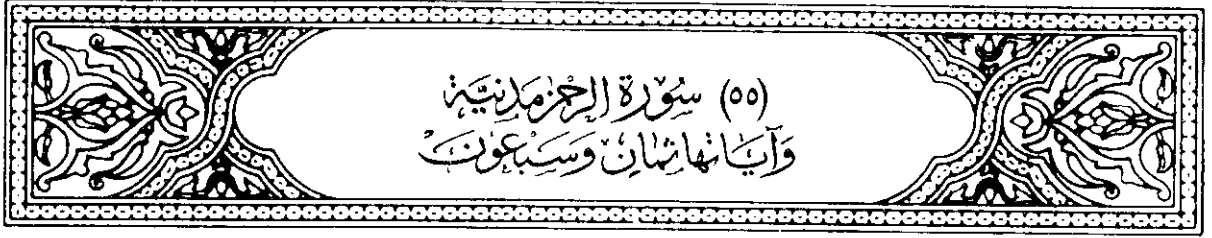 (٥٥) سُورَة الرَّحْمٰن مَدَنِيَّة
وَآيَاتُهَا ثَمَانٌ وَسَبْعُونَ